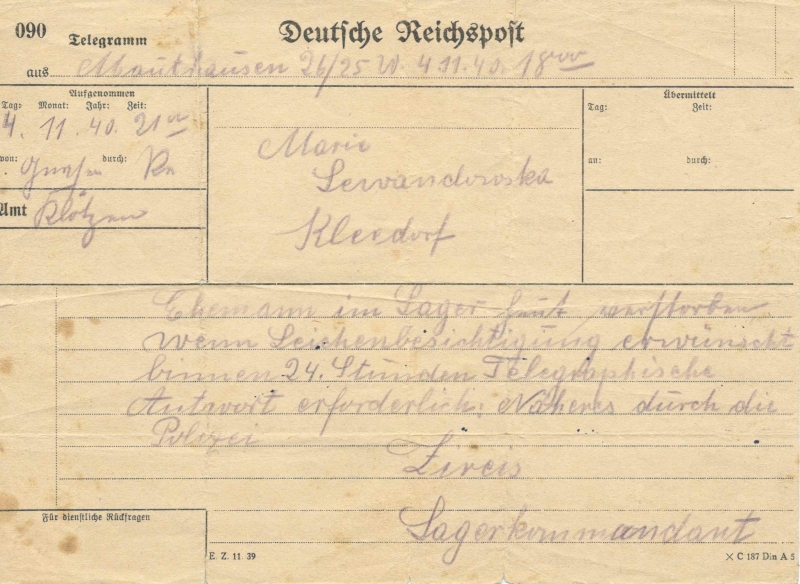 090 Telegramm Deutsche Reichspost
aus Mauthausen 26/25 W. 4 11.40. 18⁰⁰
Aufgenommen
Tag: Monat: Jahr: Zeit:
4. 11. 40. 21
von: durch:
Amt Klötzen
Marie
Lewandowska
Kleedorf
Übermittelt
Tag: Zeit:
an: durch:
Ehemann im Lager heut verstorben
wenn Leichenbesichtigung erwünscht
binnen 24. Stunden Telegraphische
Antwort erforderlich; Näheres durch die
Polizei
Zireis
Lagerkommandant
Für dienstliche Rückfragen
E. Z. 11. 39
× C 187 Din A 5